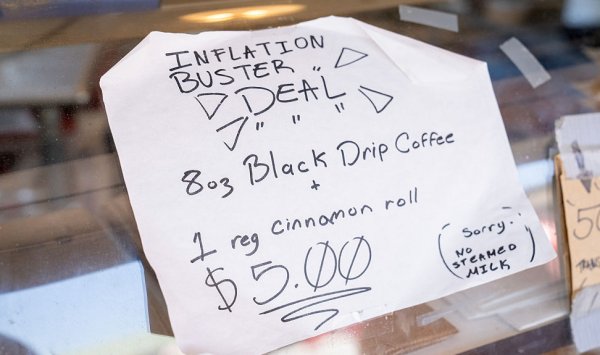 INFLATION
BUSTER
"DEAL"
8oz Black Drip Coffee
+
1 reg cinnamon roll
$5.00
(Sorry:
NO
STEAMED
MILK)